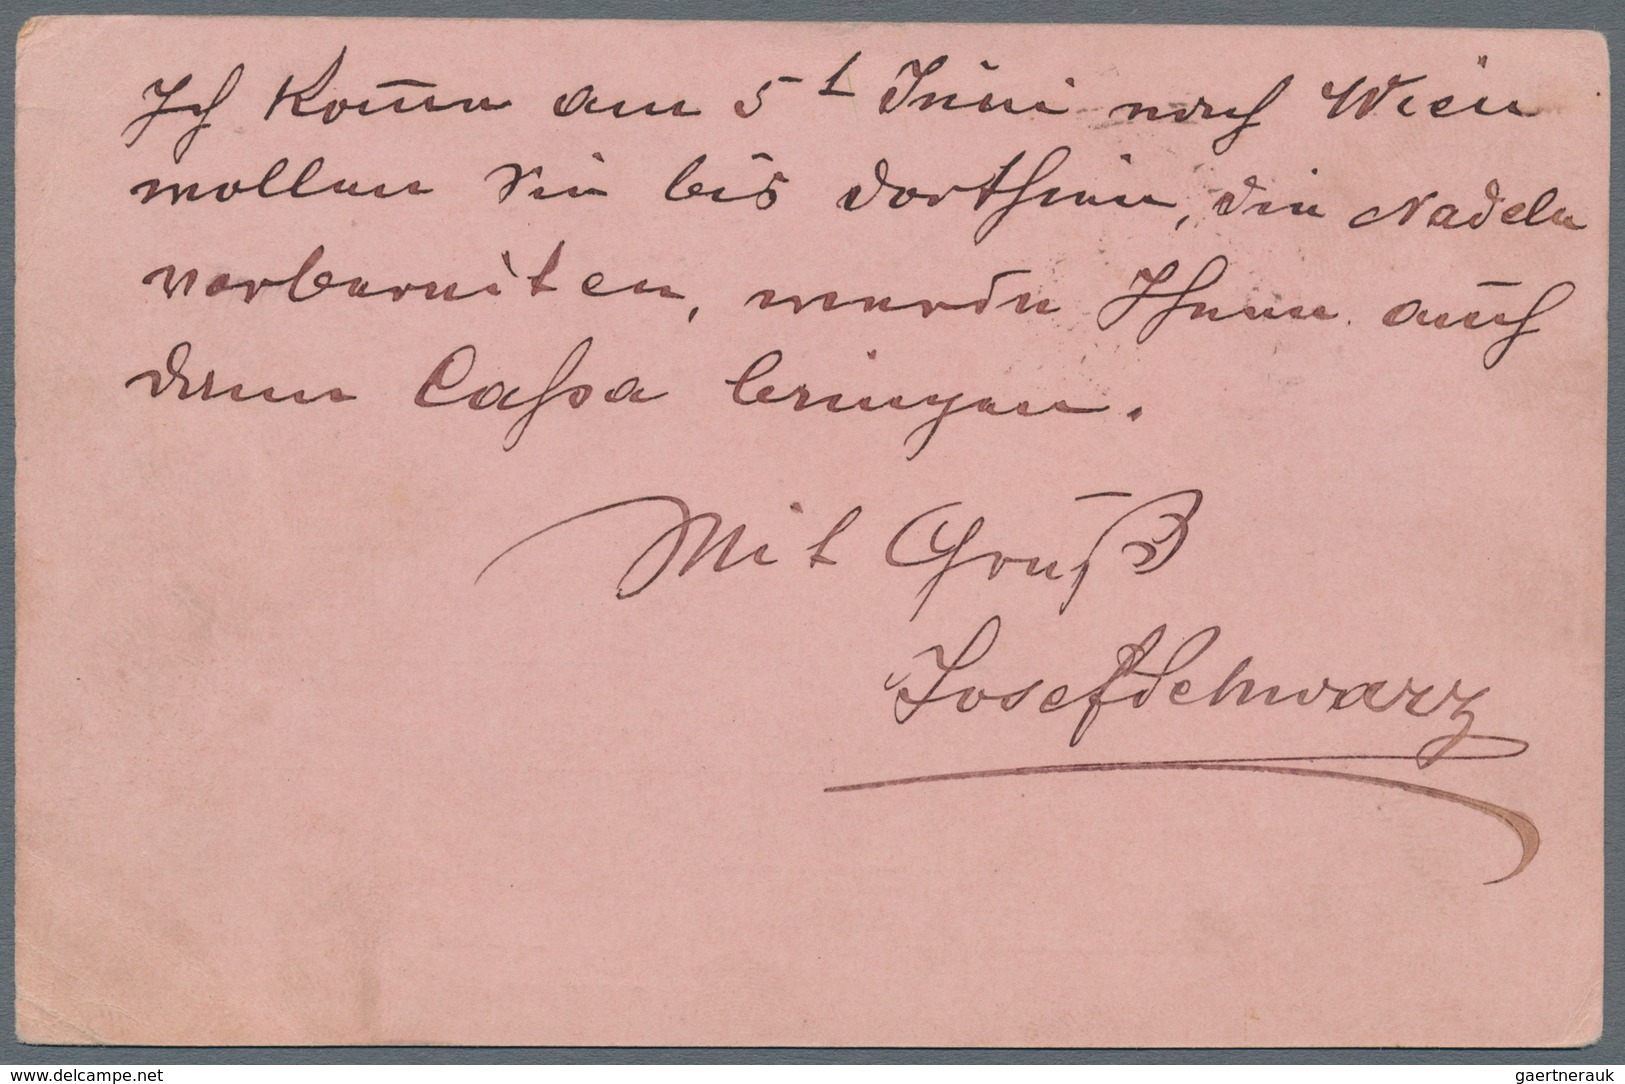 Ich kom̄e am 5t Juni nach Wien
wollen Sie bis dorthin, die Nadeln
vorbereiten, werde Ihnen auch
dann Cassa bringen.
Mit Gruß
Josef Schwarz
www.delcampe.net
gaertnerauk